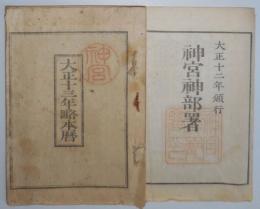 大正十二年頒行
神宮神部署
神宮
大正十三年略本暦